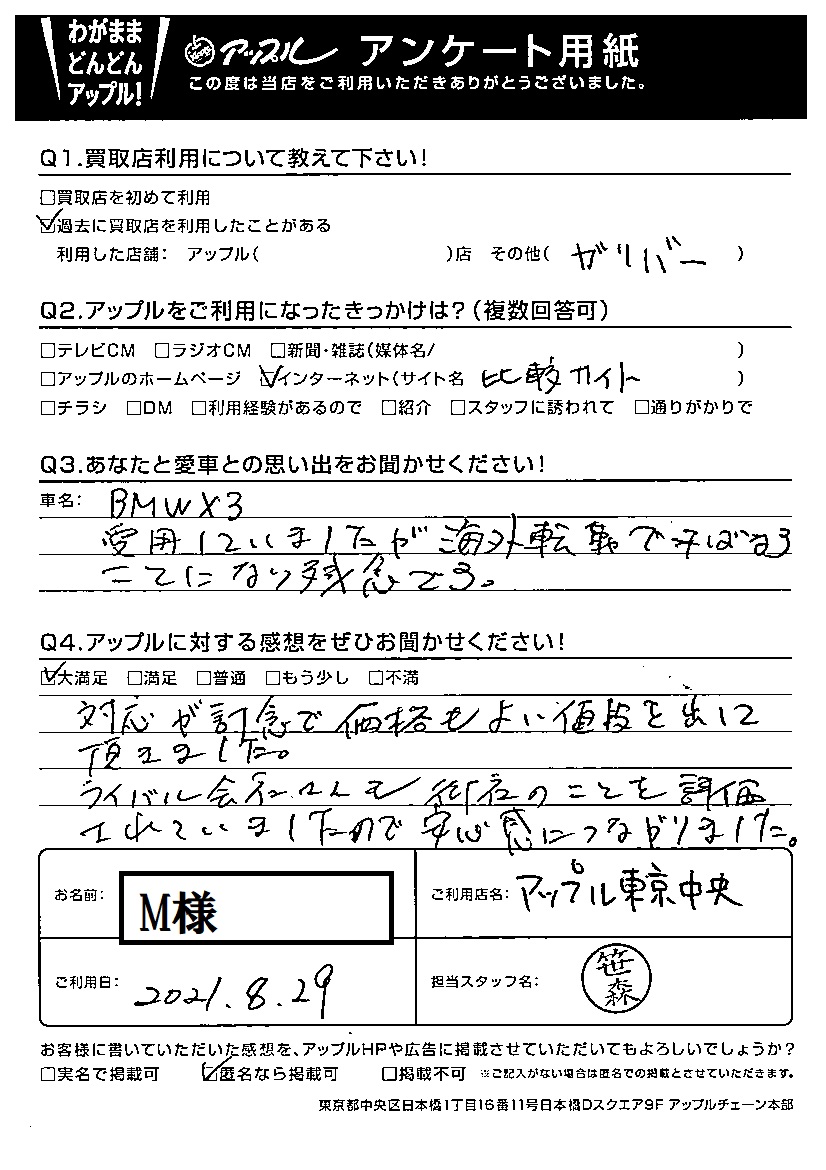 わがまま
どんどん
アップル!
アップル アンケート用紙
この度は当店をご利用いただきありがとうございました。
Q1.買取店利用について教えて下さい!
□買取店を初めて利用
☑過去に買取店を利用したことがある
利用した店舗: アップル( )店 その他( ガリバー )
Q2.アップルをご利用になったきっかけは?(複数回答可)
□テレビCM □ラジオCM □新聞・雑誌(媒体名/ )
□アップルのホームページ ☑インターネット(サイト名 比較サイト )
□チラシ □DM □利用経験があるので □紹介 □スタッフに誘われて □通りがかりで
Q3.あなたと愛車との思い出をお聞かせください!
車名: BMW X3
愛用していましたが海外転勤で手ばなす
ことになり残念です。
Q4.アップルに対する感想をぜひお聞かせください!
☑大満足 □満足 □普通 □もう少し □不満
対応が丁寧で価格もよい値段を出して
頂きました。
ライバル会社さんも御社のことを評価
されていましたので安心感につながりました。
お名前: M様
ご利用店名: アップル東京中央
ご利用日: 2021.8.29
担当スタッフ名: 笹森
お客様に書いていただいた感想を、アップルHPや広告に掲載させていただいてもよろしいでしょうか?
□実名で掲載可 ☑匿名なら掲載可 □掲載不可 ※ご記入がない場合は匿名での掲載とさせていただきます。
東京都中央区日本橋1丁目16番11号日本橋Dスクエア9F アップルチェーン本部